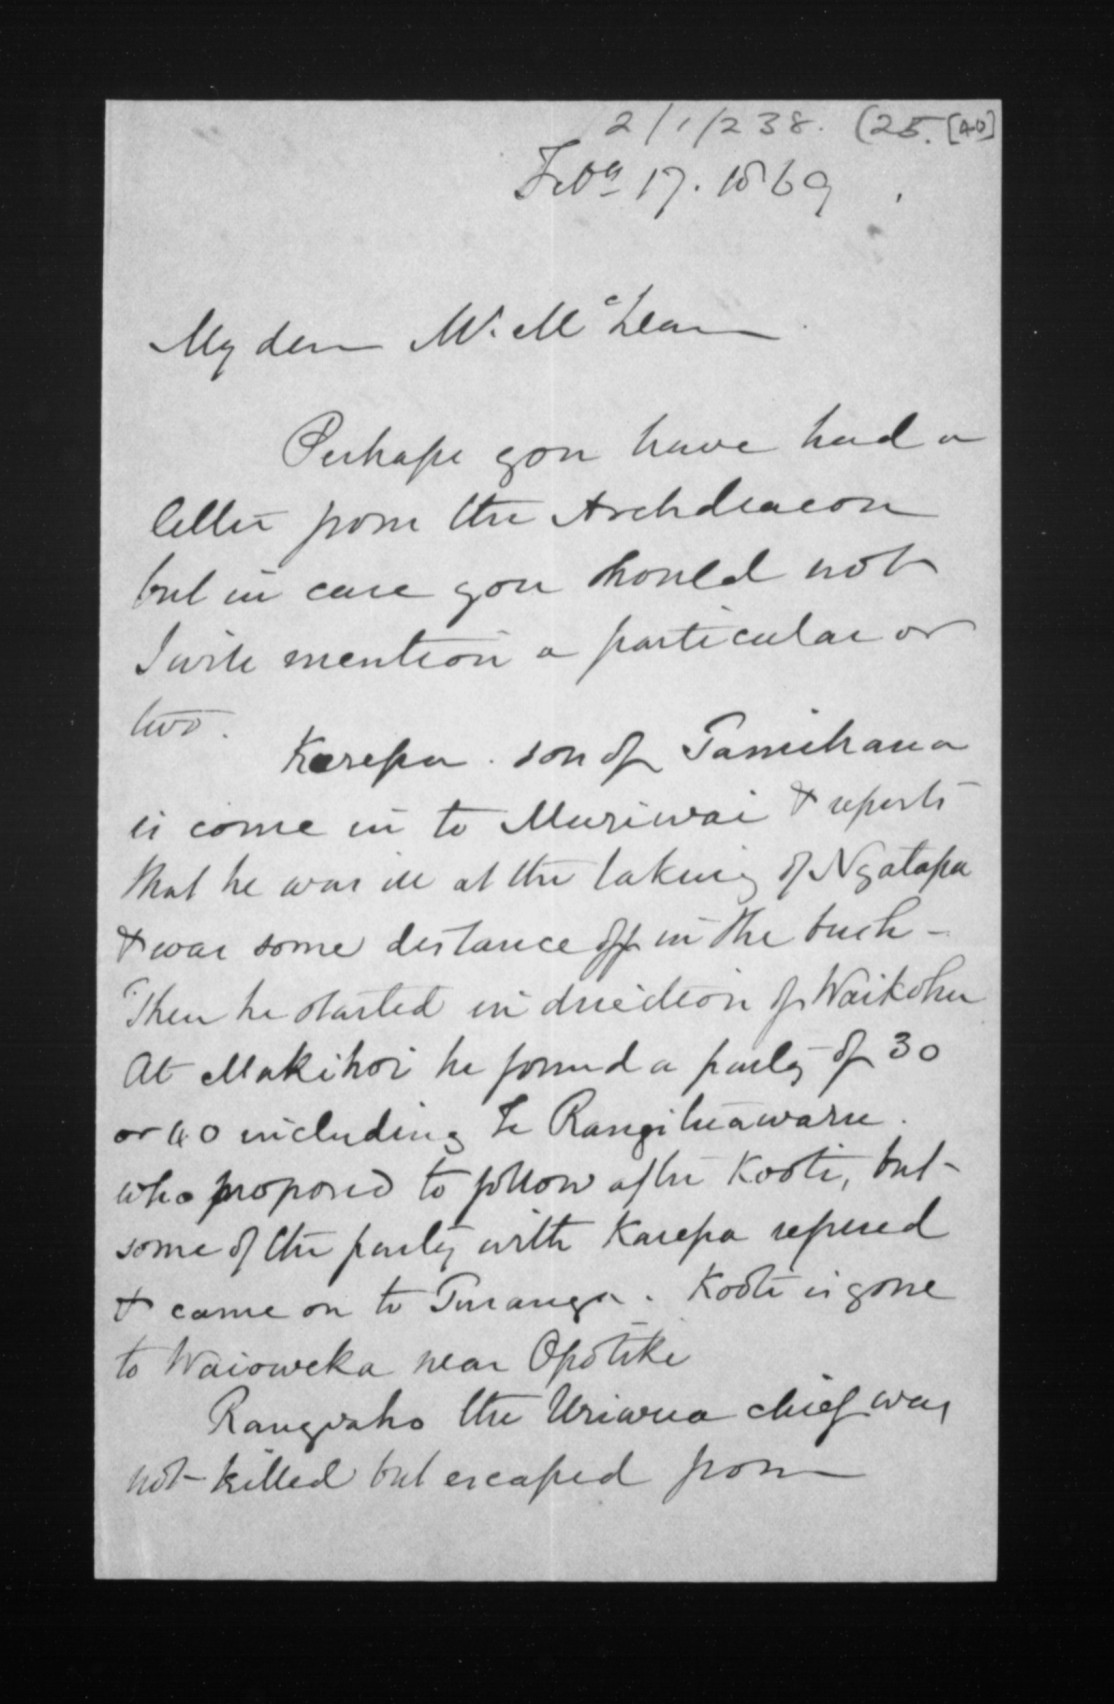 2/1/238. (25. [40]
Feby 17. 1869
My dear Mr. McLean
Perhaps you have had a
letter from the Archdeacon
but in case you should not
I will mention a particular or
two.
Karepa. son of Tamihana
is come in to Muriwai & reports
that he was ill at the taking of Ngatapa
& was some distance off in the bush -
Then he started in direction of Waikohu
At Makihoi he found a party of 30
or 40 including Te Rangituawaru.
who proposed to follow after Kooti, but
some of the party with Karepa refused
& came on to Turanga. Kooti is gone
to Waioweka near Opotiki
Rangiaho the Uriwera chief was
not killed but escaped from